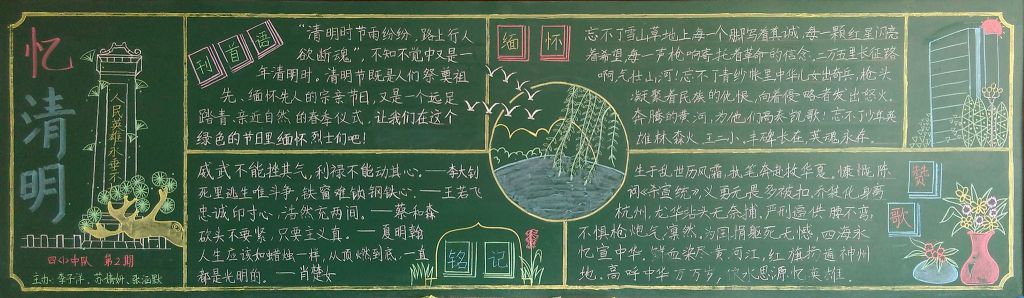 忆清明
人民英雄永垂不
四(1)中队 第2期
主办:李子洋、苏倩妍、张涵默
刊首语
“清明时节雨纷纷,路上行人
欲断魂”,不知不觉中又是一
年清明时。清明节既是人们祭奠祖
先、缅怀先人的宗亲节日,又是一个远足
踏青、亲近自然的春季仪式,让我们在这个
绿色的节日里缅怀烈士们吧!
威武不能挫其气,利禄不能动其心。——李大钊
死里逃生唯斗争,铁窗难锁钢铁心。——王若飞
忠诚印寸心,浩然充两间。——蔡和森
砍头不要紧,只要主义真。——夏明翰
人生应该如蜡烛一样,从顶燃到底,一直
都是光明的。——肖楚女
铭记
缅怀
忘不了雪山草地上每一个脚写着真诚,每一颗红星闪亮
着希望,每一声枪响寄托着革命的信念,二万五里长征路
啊,气壮山河!忘不了青纱帐里中华儿女出奇兵,枪头
凝聚着民族的仇恨,向着侵略者发出怒火。
奔腾的黄河,为他们高奏凯歌!忘不了少年英
雄林森火、王二小,丰碑长在,英魂永存。
赞歌
生于乱世历风霜,执笔奔赴救华夏,慷慨陈
词 宣统 义勇无畏多被扣,乔装化身奔
杭州,龙华站头无奈捕,严刑逼供腰不弯,
不惧枪炮气凛然,治国捐躯死无憾,四海永
忆宣中华,鲜血染尽黄河江,红旗扬遍神州
地,高呼中华万万岁,饮水思源忆英雄。